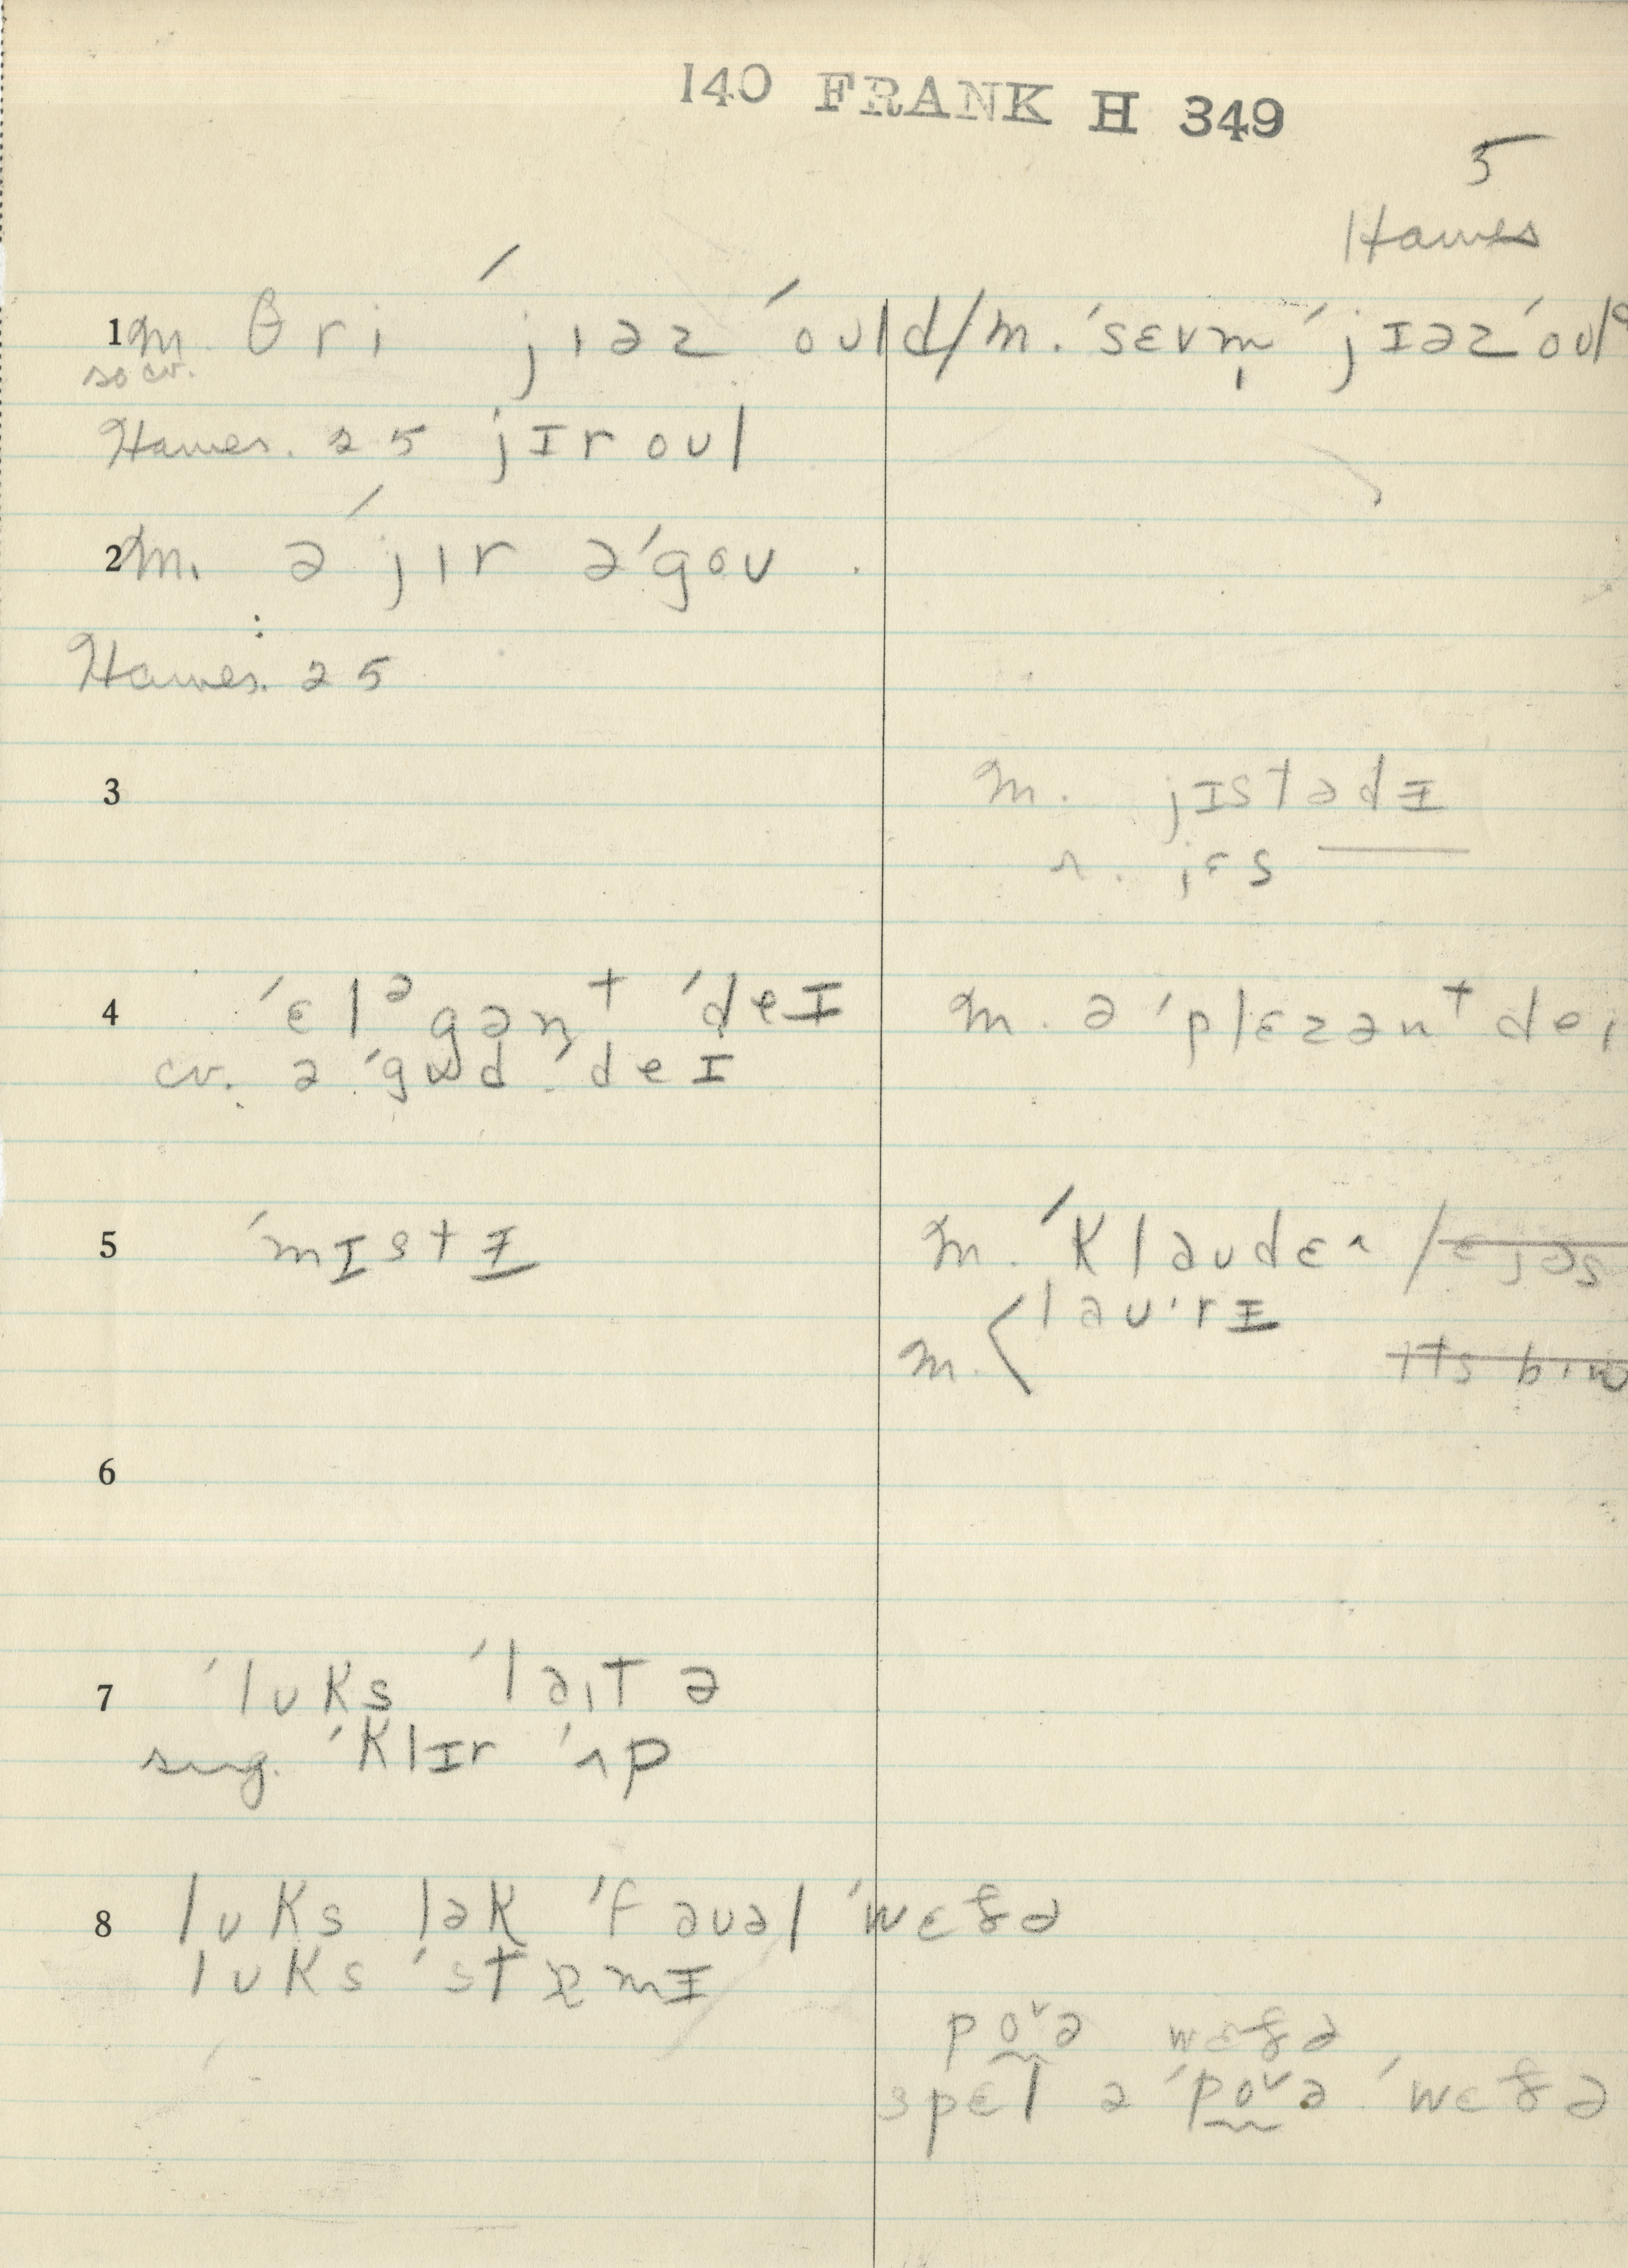 140 FRANK H 349
5
Hawes
1 m. θri ˈjıəz ˈould/m. ˈsɛvm̩ ˈjɪəz ˈoul
so cv.
Hawes. 25 jɪr oʊl
2 m. ə ˈjır əˈgoʊ
Hawes. 25
3 m. jɪstədɪ
r. jɛs ——
4 ˈɛlᵊgənᵗ ˈdeɪ m. ə ˈplɛzənᵗ deı
cv. ə ˈgʊd ˈdeɪ
5 ˈmɪstɪ m. ˈklaʊdɛʌ / ɛjəs
m. < laʊˑrɪ
ɪts bın
6
7 ˈlʊks ˈləıt ə
sug. ˈklɪr ˈʌp
8 lʊks lək ˈfaʊəl ˈwɛðə
lʊks ˈstɔmɪ
poᵛə wɛðə
spɛl ə ˈpoᵛə ˈwɛðə